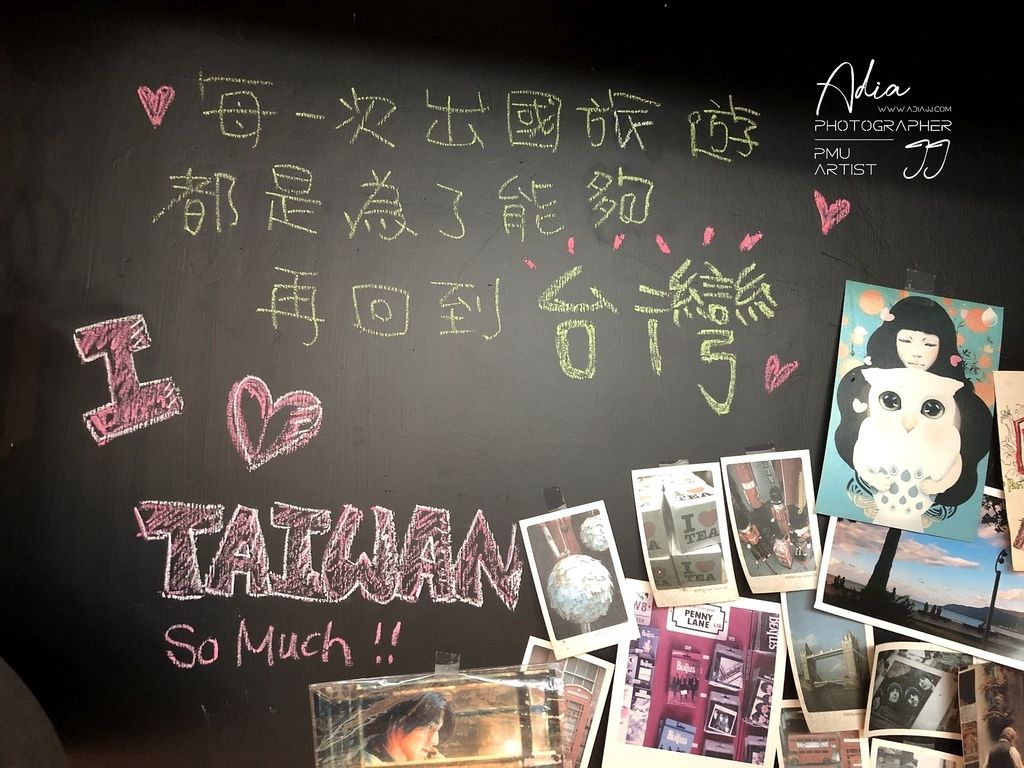 每一次出國旅遊
都是為了能夠
再回到台灣
I
TAIWAN
So Much !!
Adia
WWW.ADIAJJ.COM
PHOTOGRAPHER
PMU
ARTIST JJ
I
TEA
I
TEA
PENNY
LANE
W8
BEATLES